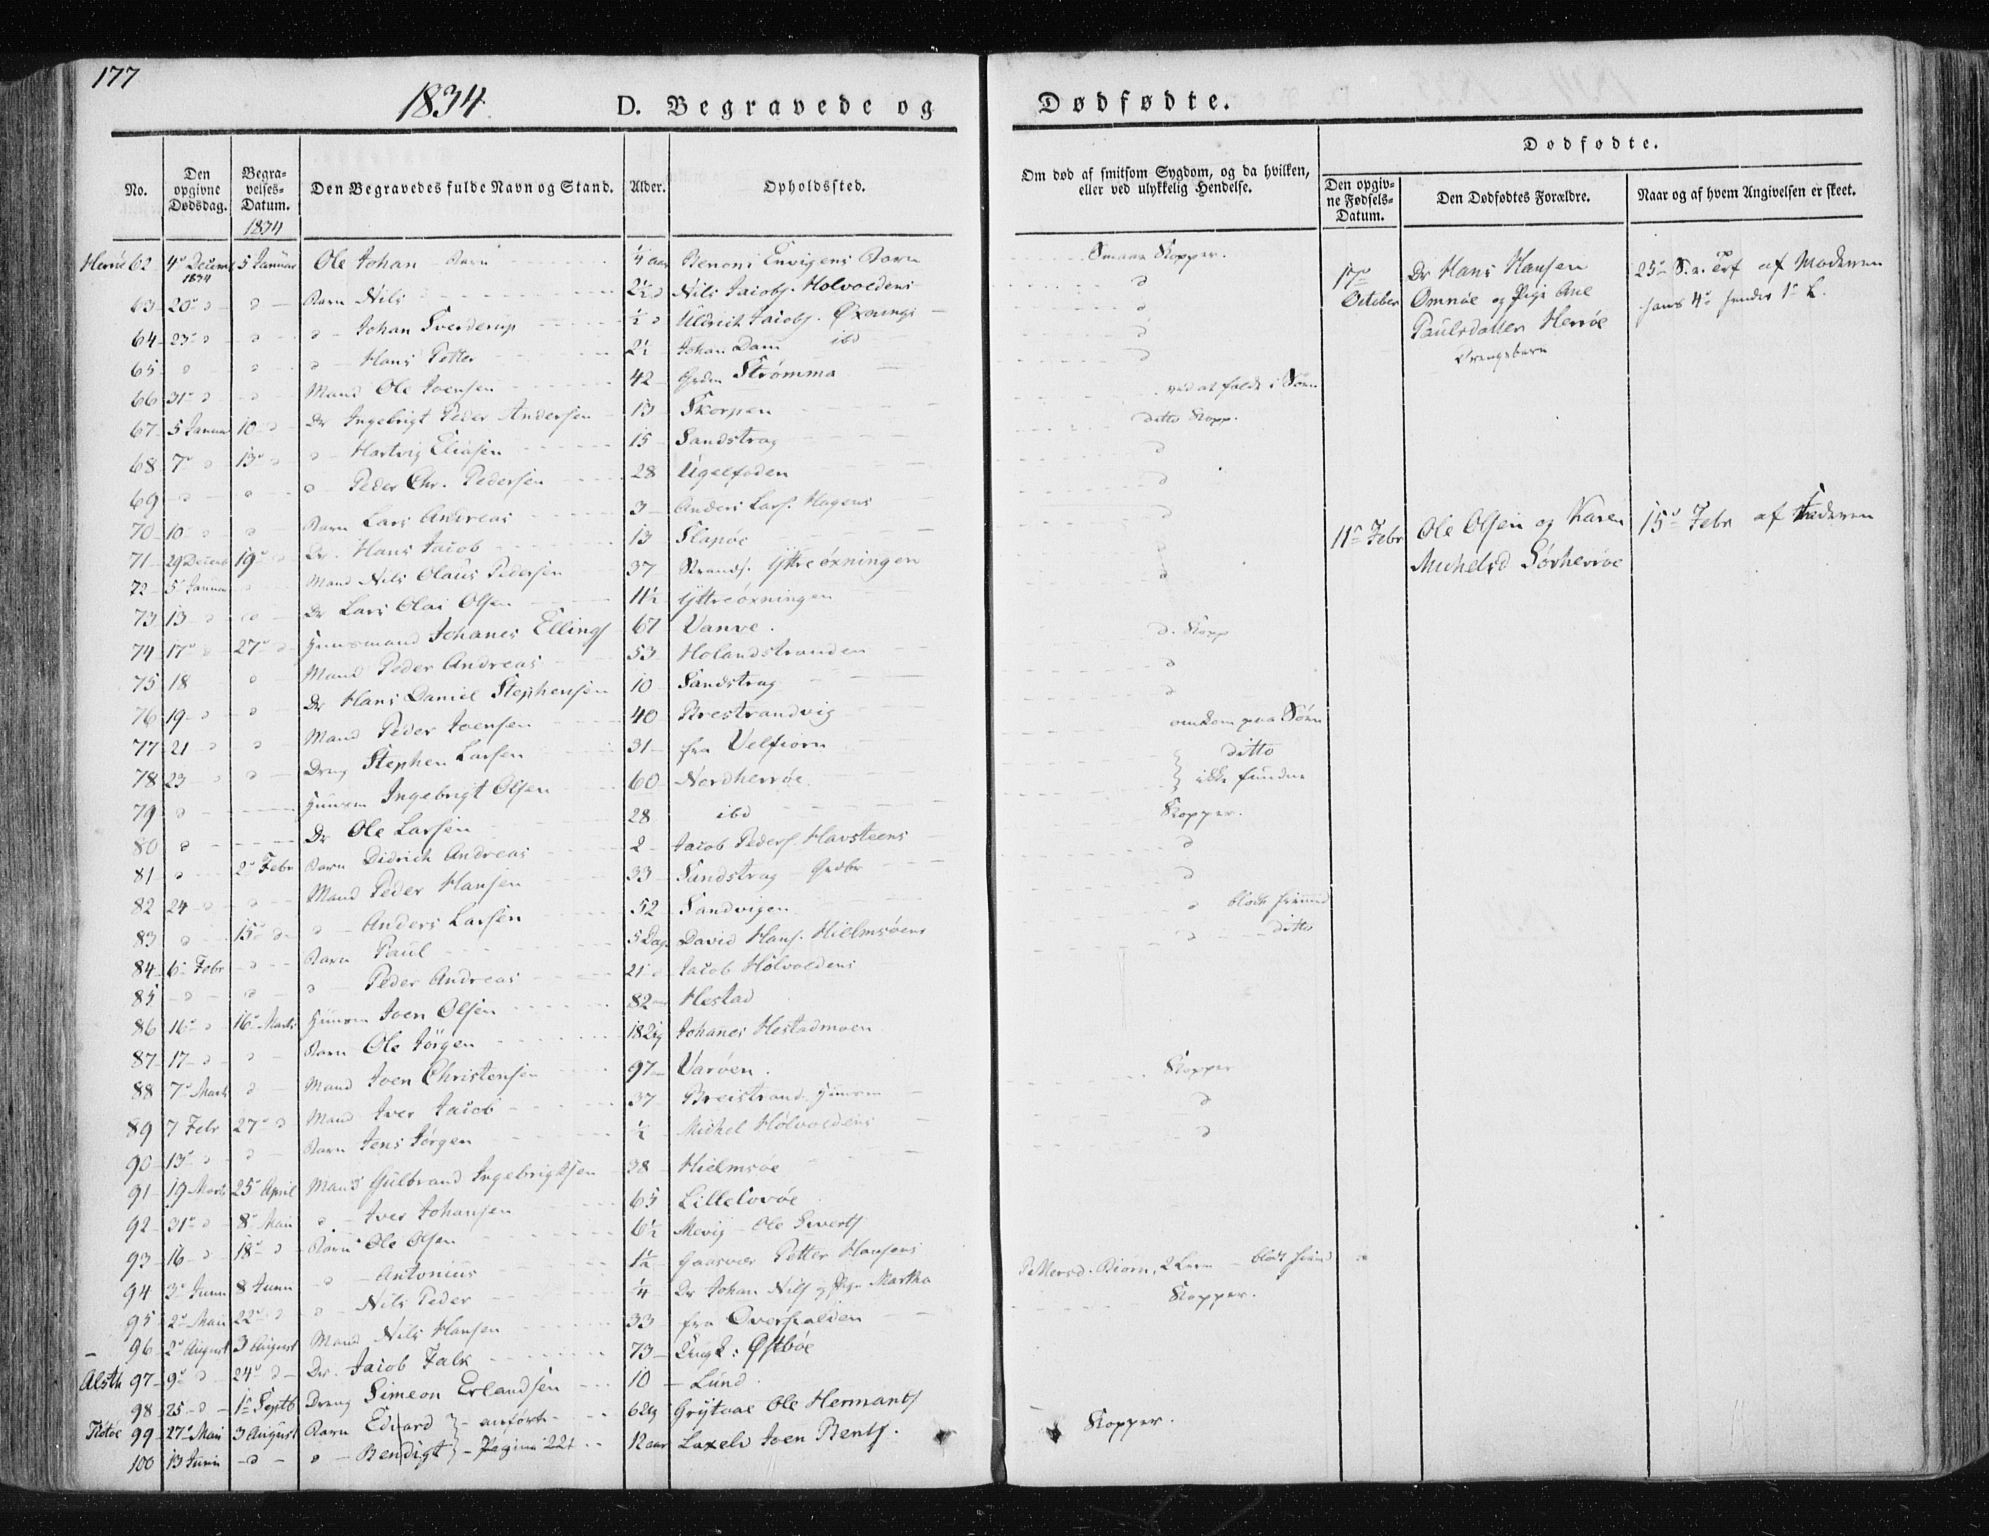 177
1834. D. Begravede og Dødfødte.
No.
Den opgivne Dødsdag.
Begravelses-Datum.
Den Begravedes fulde Navn og Stand.
Alder.
Opholdssted.
Om død af smitsom Sygdom, og da hvilken, eller ved ulykkelig Hendelse.
Dødfødte.
Den opgivne Fødsels-Datum.
Den Dødfødtes Forældre.
Naar og af hvem Angivelsen er skeet.
1834
Herröe 62 4de Decemb 1834 5 Januar Ole Johan Barn ¼ aar Benoni Barn Smaae Kopper.
63 20 d d Barn Nils 2½ d Nils Jacobs. Holvoldens d
64 23 d d d Johan Sverderup ½ d Uldrich Jacobs. Øxnings d
65 d d d Hans Petter 2½ Johan Dam ibd d
66 31 d d Mand Ole Joensen 42 Strømmo ved at falde i Søen
67 5 Januar 10 d Dr Ingebrigt Peder Andersen 13 Skorpen ditto Kopp.
68 7 d 13 d d Hartvig Eliasen 15 Sandstrag d
69 d d d Peder Chr. Pedersen 28 Ugelfoden d
70 10 d Barn Lars Andreas 3 Anders Lars. Hagens d
71 29 Decemb 19 d Dr. Hans Jacob 13 Slapöe d
72 5 Januar d Mand Nils Olaus Pedersen 37 Yttreöxningen d
73 13 d d Dr Lars Olai Olsen 11½ Yttreöxningen
74 17 d 27 d Huusmand Johanes Ellings 67 Vanve. d. Kopp
75 18 d Mand Peder Andreas 53 Holandstranden d
76 19 d d Dr Hans Daniel Stephensen 10 Sandstrag d
77 21 d d Mand Peder Joensen 40 Brestrandvig omkom paa Søen
78 23 d d Dreng Stephen Larsen 31 fra Velfiorn ditto
79 d Huusm Ingebrigt Olsen 60 Nordherröe ikke funden
80 d Dr Ole Larsen 28 ibd Kopper.
81 d 2 Febr Barn Didrich Andreas 2 Jacob Peders. Havsteens d
82 24 d d Mand Peder Hansen 33 Sandstrag d
83 d 15 d d Anders Larsen 52 Sandvigen d
84 6 Febr d Barn Paul 5 Dag David Hans. Hielmsöens d ditto
85 d d d Peder Andreas 21 d Jacob Holvoldens
86 16 d 16 Marts Huusm Joen Olsen 82 Hestad
87 17 d d Barn Ole Jörgen Johanes Hestadmoen
88 7 Marts d Mand Joen Christensen 97 Varöen. Kopper
89 7 Febr 27 d Mand Iver Jacob 37 Breistrand Huusm d
90 13 d d Barn Jens Jörgen ½ Michel Holvoldens d
91 19 Marts 25 April Mand Gulbrand Ingebrigtsen 38 Hielmsöe
92 31 d 8 Mai d Iver Johansen 65
93 16 d 18 d Barn Ole Olsen 6½ Mevig Ole Siverts
94 3 Juni 8 Juni d Antonius 1½ Gaasvær Petter Hansens
95 2 Mai 22 d d Nils Peder ¼ Dr Johan Nils og Pige Martha Kopper.
96 2 August 3 August Mand Nils Hansen 33 fra Overhalden
Alsth 97 9 d 24 d Dr. Jacob Falk 73 Østböe
98 25 d 1 Septb Dreng Simeon Erlandsen 10 Lund.
Tiötöe 99 27 Mai 3 August Barn Edvard anförte Grytaae Ole Hermants Kopper.
100 13 Juni d d Bendigt Pagina 221 12 aar Laxelv Joen Bents.
17de October Dr Hans Hansen Omnöe og Pige Ane Paulsdatter Herröe Drengebarn 25 af Moderen hans 4de hendes 1ste L.
11te Febr Ole Olsen og Karen Michelsd Sörherröe 15 Febr af Faderen